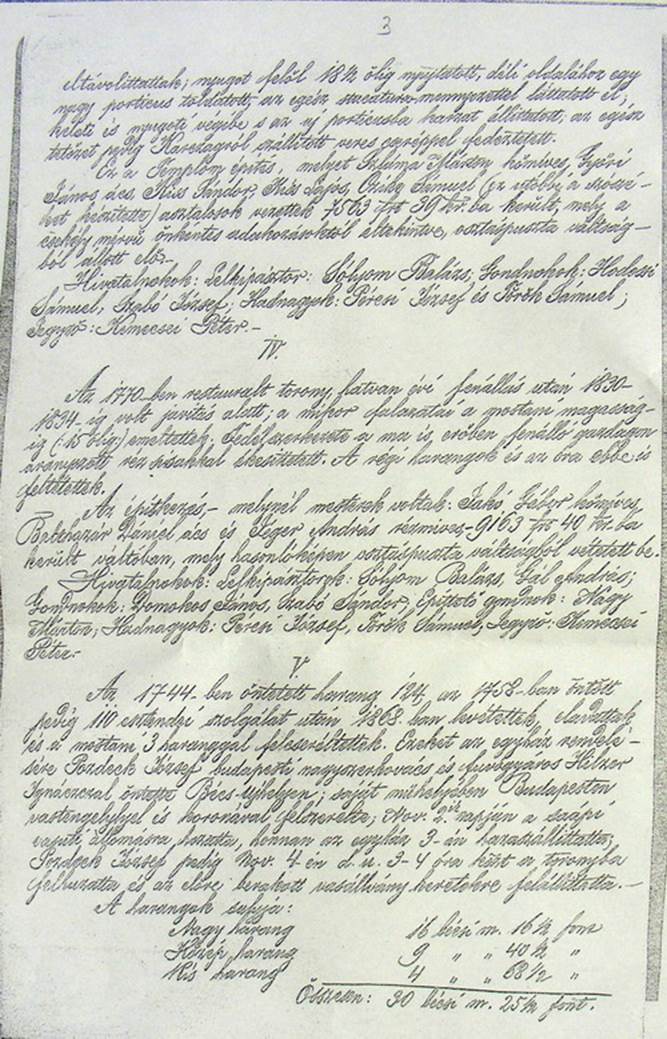 3
eltávolíttattak; nyugot felöl 18½ ölig nyujtatott, déli oldalához egy
nagy porticus toldatott, az egész stucatura mennyezettel láttatott el;
keleti és nyugoti végibe s az uj porticusba karzat állíttatott; az egész
tetőzet pedig Karczagról szállított veres cseréppel fedeztetett.
Ez a Templom építés, melyet Márton kőmíves, Győri
János ács, Kiss Sándor, Kiss Lajos, Sámuel (ez utóbbi a
ket készítette) asztalosok vezettek 7563 frt 39 kr.ba került, mely a
csekély mérvü önkéntes adakozásoktól eltekintve, osztáspuszta váltság-
ból állott elő.-
Hivatalnokok: Lelkipásztor: Sólyom Balázs, Gondnokok: Hodossi
Sámuel, Szabó József; Hadnagyok: Pércsi József és Török Sámuel;
Jegyző: Kimecsei Péter.-
IV.
Az 1770-ben restaurált torony, hatvan évi fenállás után 1830-
1834-ig volt javítás alatt; a mikor falazatai a mostani magasság-
ig (:15 ölig:) emeltettek. Fedélszerkezete a ma is erőben fenálló gazdagon
aranyozott réz sisakkal ékesíttetett. A régi harangok és az óra ebbe is
feltétettek.
Az építkezés,- melynél mesterek voltak: Jakó Gábor kőmíves,
Dániel ács és Jéger András rézmíves,- 9163 frt 40 kr.ba
került váltóban, mely hasonlóképen osztáspuszta váltságból vétetett be.
Hivatalnokok: Lelkipásztorok: Sólyom Balázs, Gál András;
Gondnokok: Domokos János, Szabó Sándor, Építtető gondnok: Nagy
Márton; Hadnagyok: Pércsi József, Török Sámuel, Jegyző: Kimecsei
Péter.
V.
Az 1744-ben öntetett harang 124, az 1758-ban öntött
pedig 110 esztendei szolgálat után 1868-ban levétettek, eladattak
és a mostani 3 haranggal felcseréltettek. Ezeket az egyház rendelé-
sére Pozdech József budapesti nagyszerkovács és fúrógyáros Hilzer
Ignáczczal öntette Bécs-Ujhelyen; saját műhelyében Budapesten
vastengelylyel és koronával felszerelte; Nov. 2ik napján a szapi
vasuti állomásra hozatta, honnan az egyház 3-án hazaszállíttatta;
Pozdech József pedig Nov. 4-én d. u. 3-4 óra közt a toronyba
felhuzatta és az előre berakott vasállvány keretekre felállíttatta.-
A harangok sulyja:
Nagy harang 16 bécsi m. 16½ font
Közép harang 9 „ „ 40½ „
Kis harang 4 „ „ 68½ „
Összesen: 30 bécsi m. 25½ font.